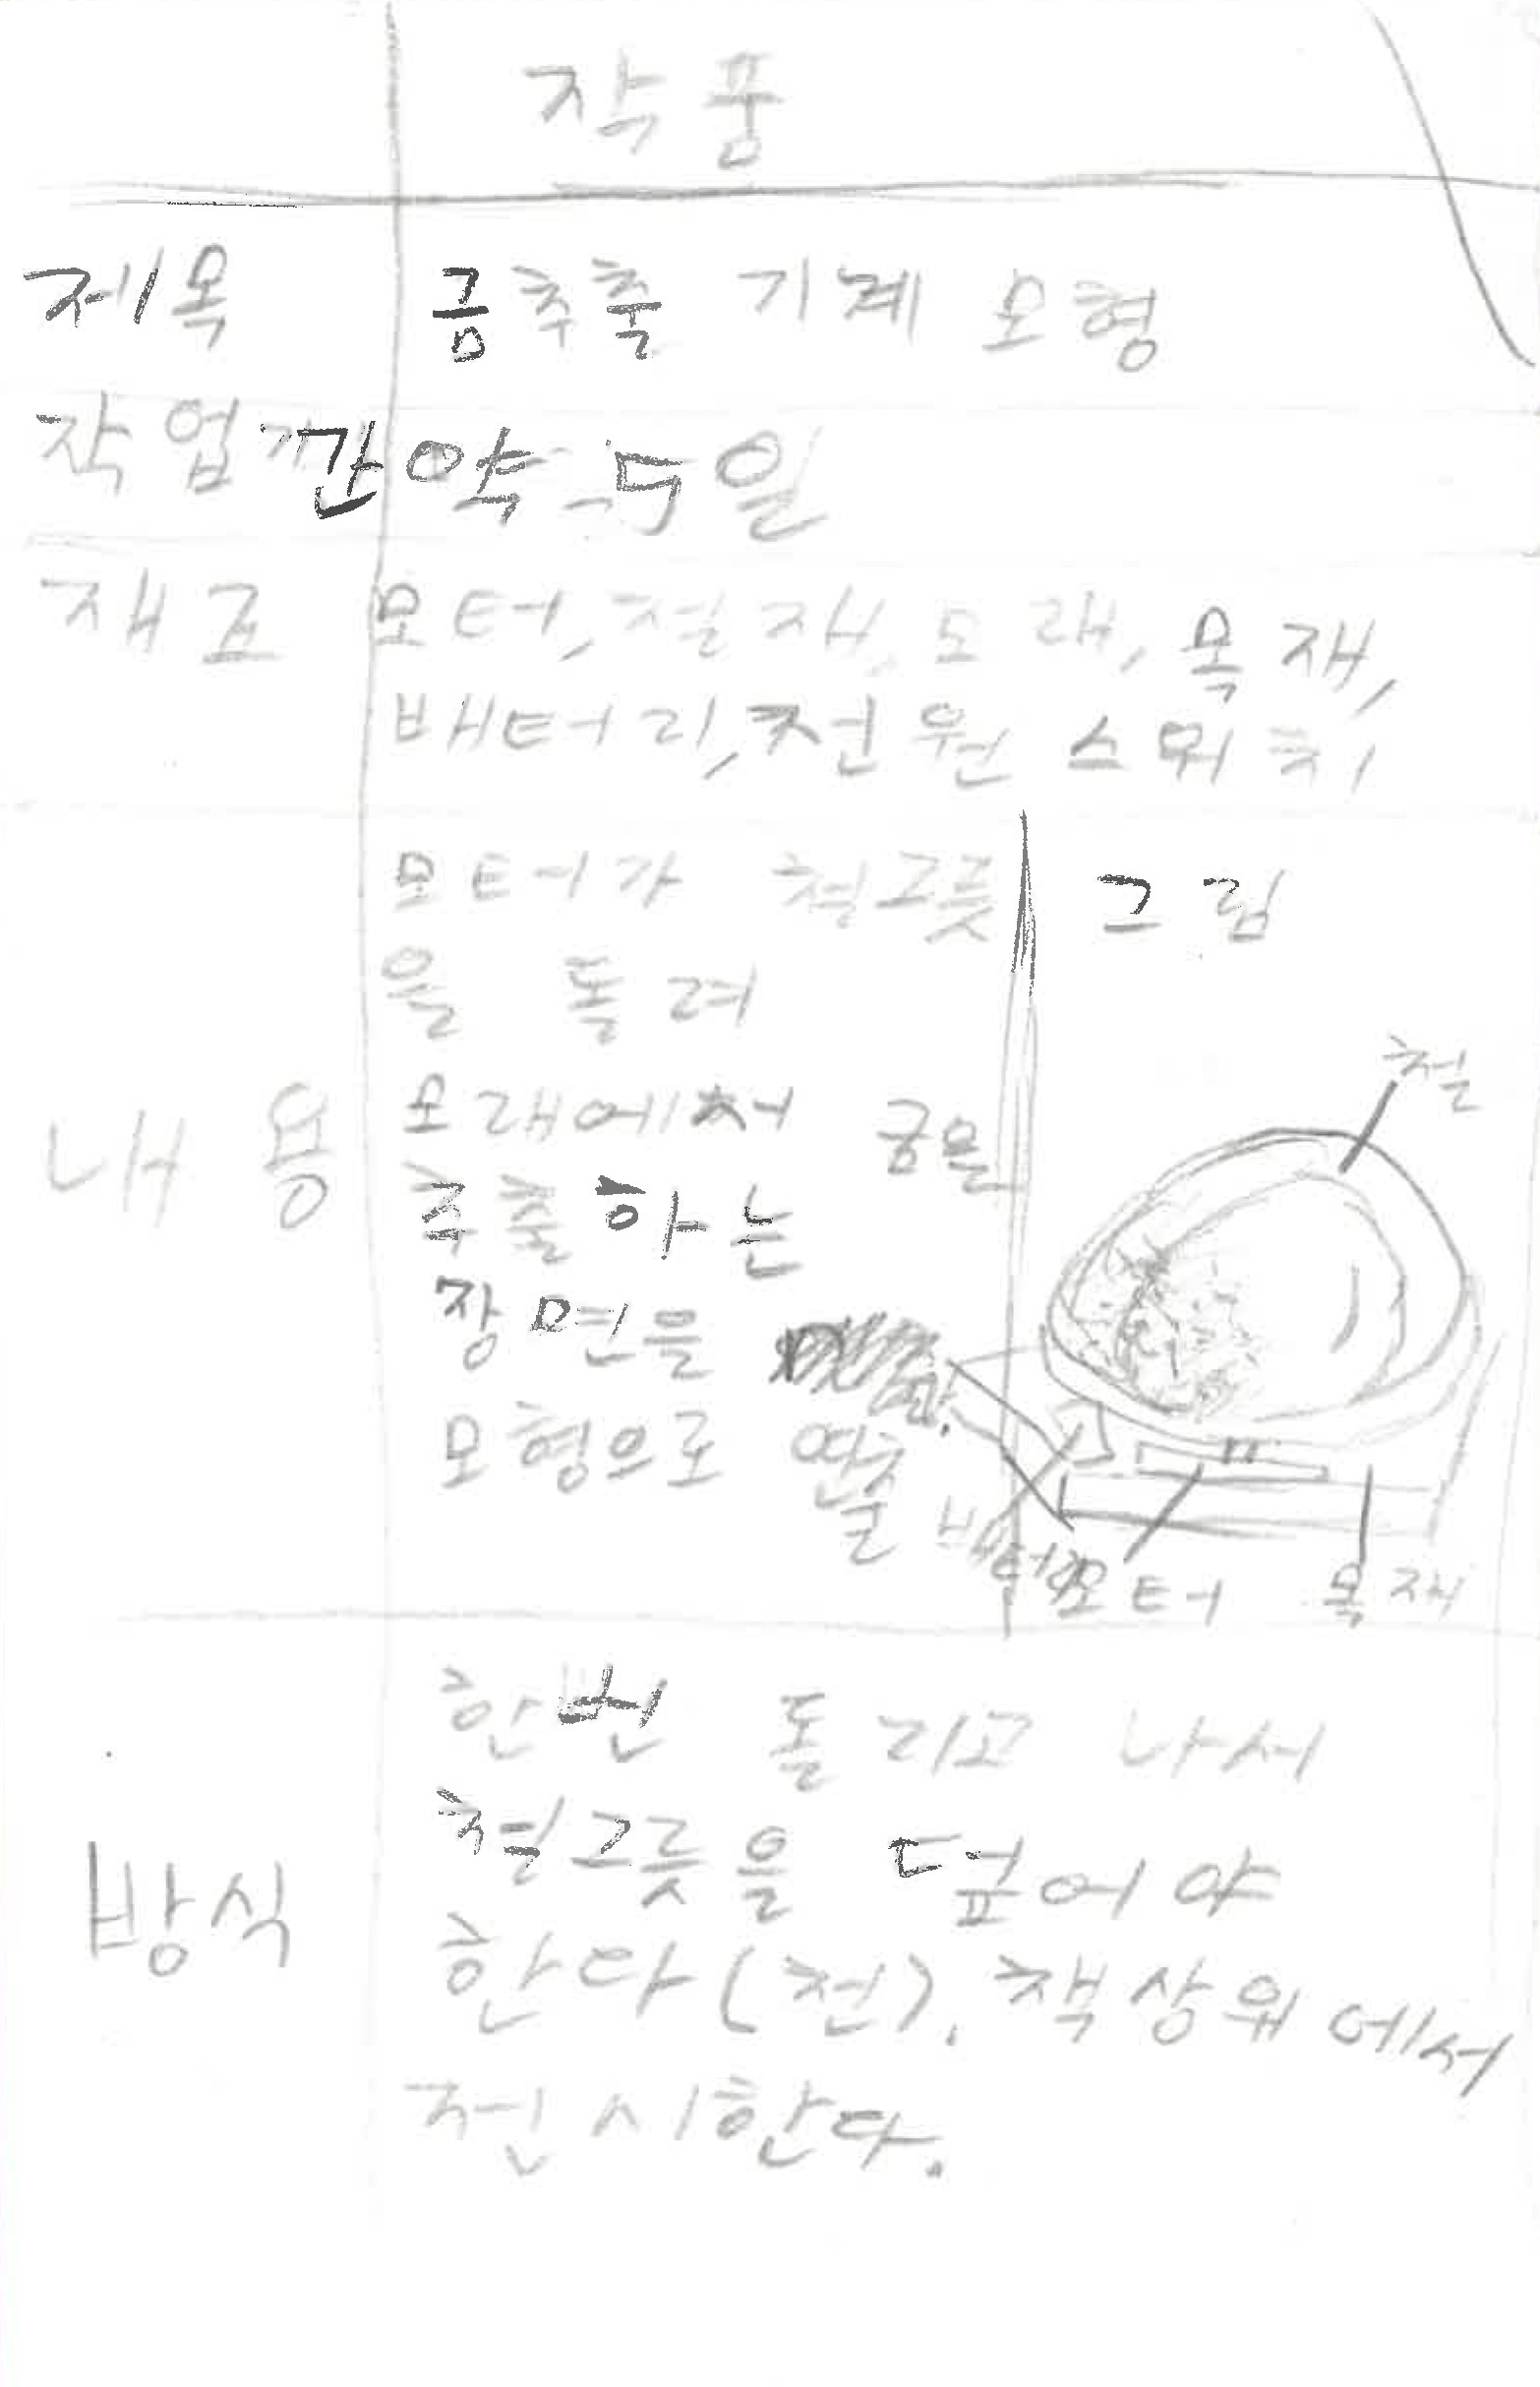 작품
제목 금추출 기계 모형
작업기간 약 5일
재료 모터, 철재, 모래, 목재,
배터리, 전원 스위치
모터가 철그릇
을 돌려
내용 모래에서 금을
추출하는
장면을
모형으로 만듦
그림
철
배터리 모터 목재
한번 돌리고 나서
방식 철그릇을 덮어야
한다(천). 책상위에서
전시한다.